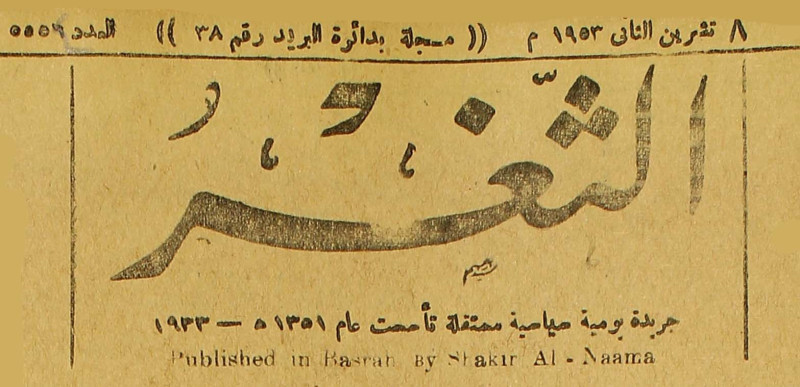 ٨ تشرين الثاني ١٩٥٣ م (( مسجلة بدائرة البريد رقم ٣٨ )) العدد ٥٥٥٦
الثَّغر
جريدة يومية سياسية مستقلة تأسست عام ١٣٥١ ه — ١٩٣٣
Published in Basrah By Shakir Al - Naama